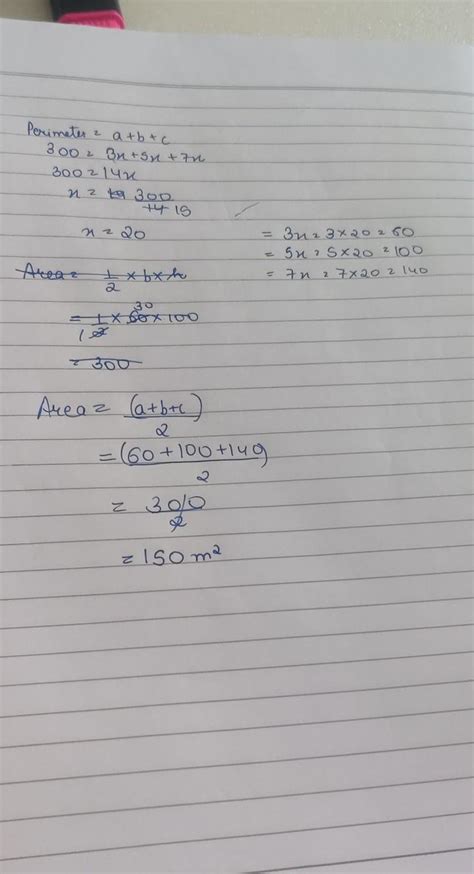 Perimeter = a+b+c
300 = 3x+5x+7x
300 = 14x
x = 300
15
x = 20
= 3x = 3×20 = 60
= 5x = 5×20 = 100
= 7x = 7×20 = 140
Area = 1/2 × b × h
= 1/2 × 60 × 100
30
1
= 300
Area = (a+b+c)
2
= (60+100+140)
2
= 300
2
= 150 m²